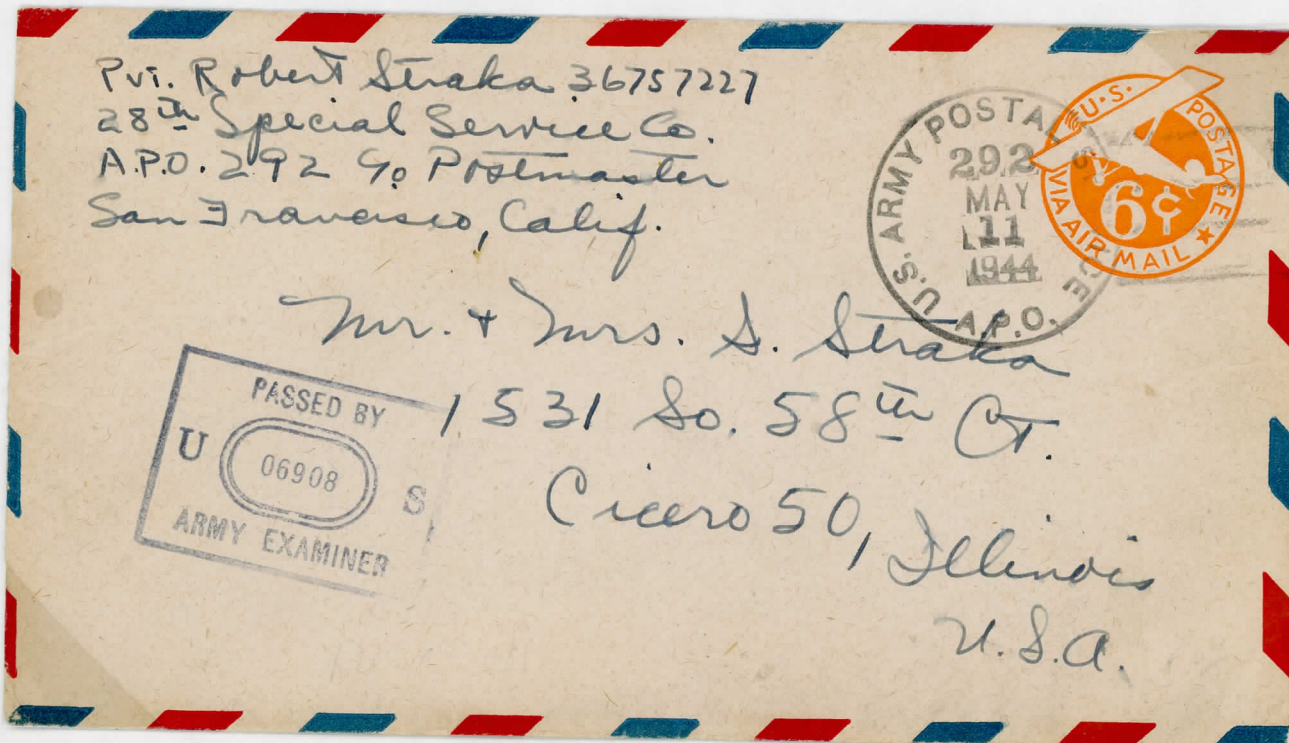 Pvt. Robert Straka 36757227
28th Special Service Co.
A.P.O. 292 c/o Postmaster
San Francisco, Calif.
U.S. ARMY POSTAL
292
MAY
11
1944
A.P.O.
U.S. POSTAGE
6¢
VIA AIR MAIL
Mr. + Mrs. S. Straka
1531 So. 58th Ct.
Cicero 50, Illinois
U.S.A.
PASSED BY
U 06908 S
ARMY EXAMINER